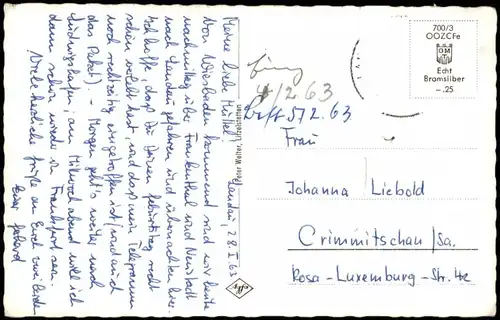 Landau, 28. I. 63
Meine liebe Mutter!
Von Wiesbaden kommend sind wir heute
nachmittag über Frankenthal und Neustadt
nach Landau gefahren und übernachten hier.
Ich hoffe, daß Du Deinen Geburtstag recht
schön verlebt hast, und daß mein Telegramm
noch rechtzeitig eingetroffen ist (und auch
das Paket) – Morgen geht's weiter nach
Ludwigshafen, am Mittwoch abend will ich
dann schon wieder in Frankfurt sein.
Viele herzliche Grüße an Euch von beiden
Euer Gerhard
4/2 63
5/2. 63
700/3
OOZCFe
Echt
Bromsilber
-.25
Frau
Johanna Liebold
Crimmitschau/Sa.
Rosa-Luxemburg-Str. 42